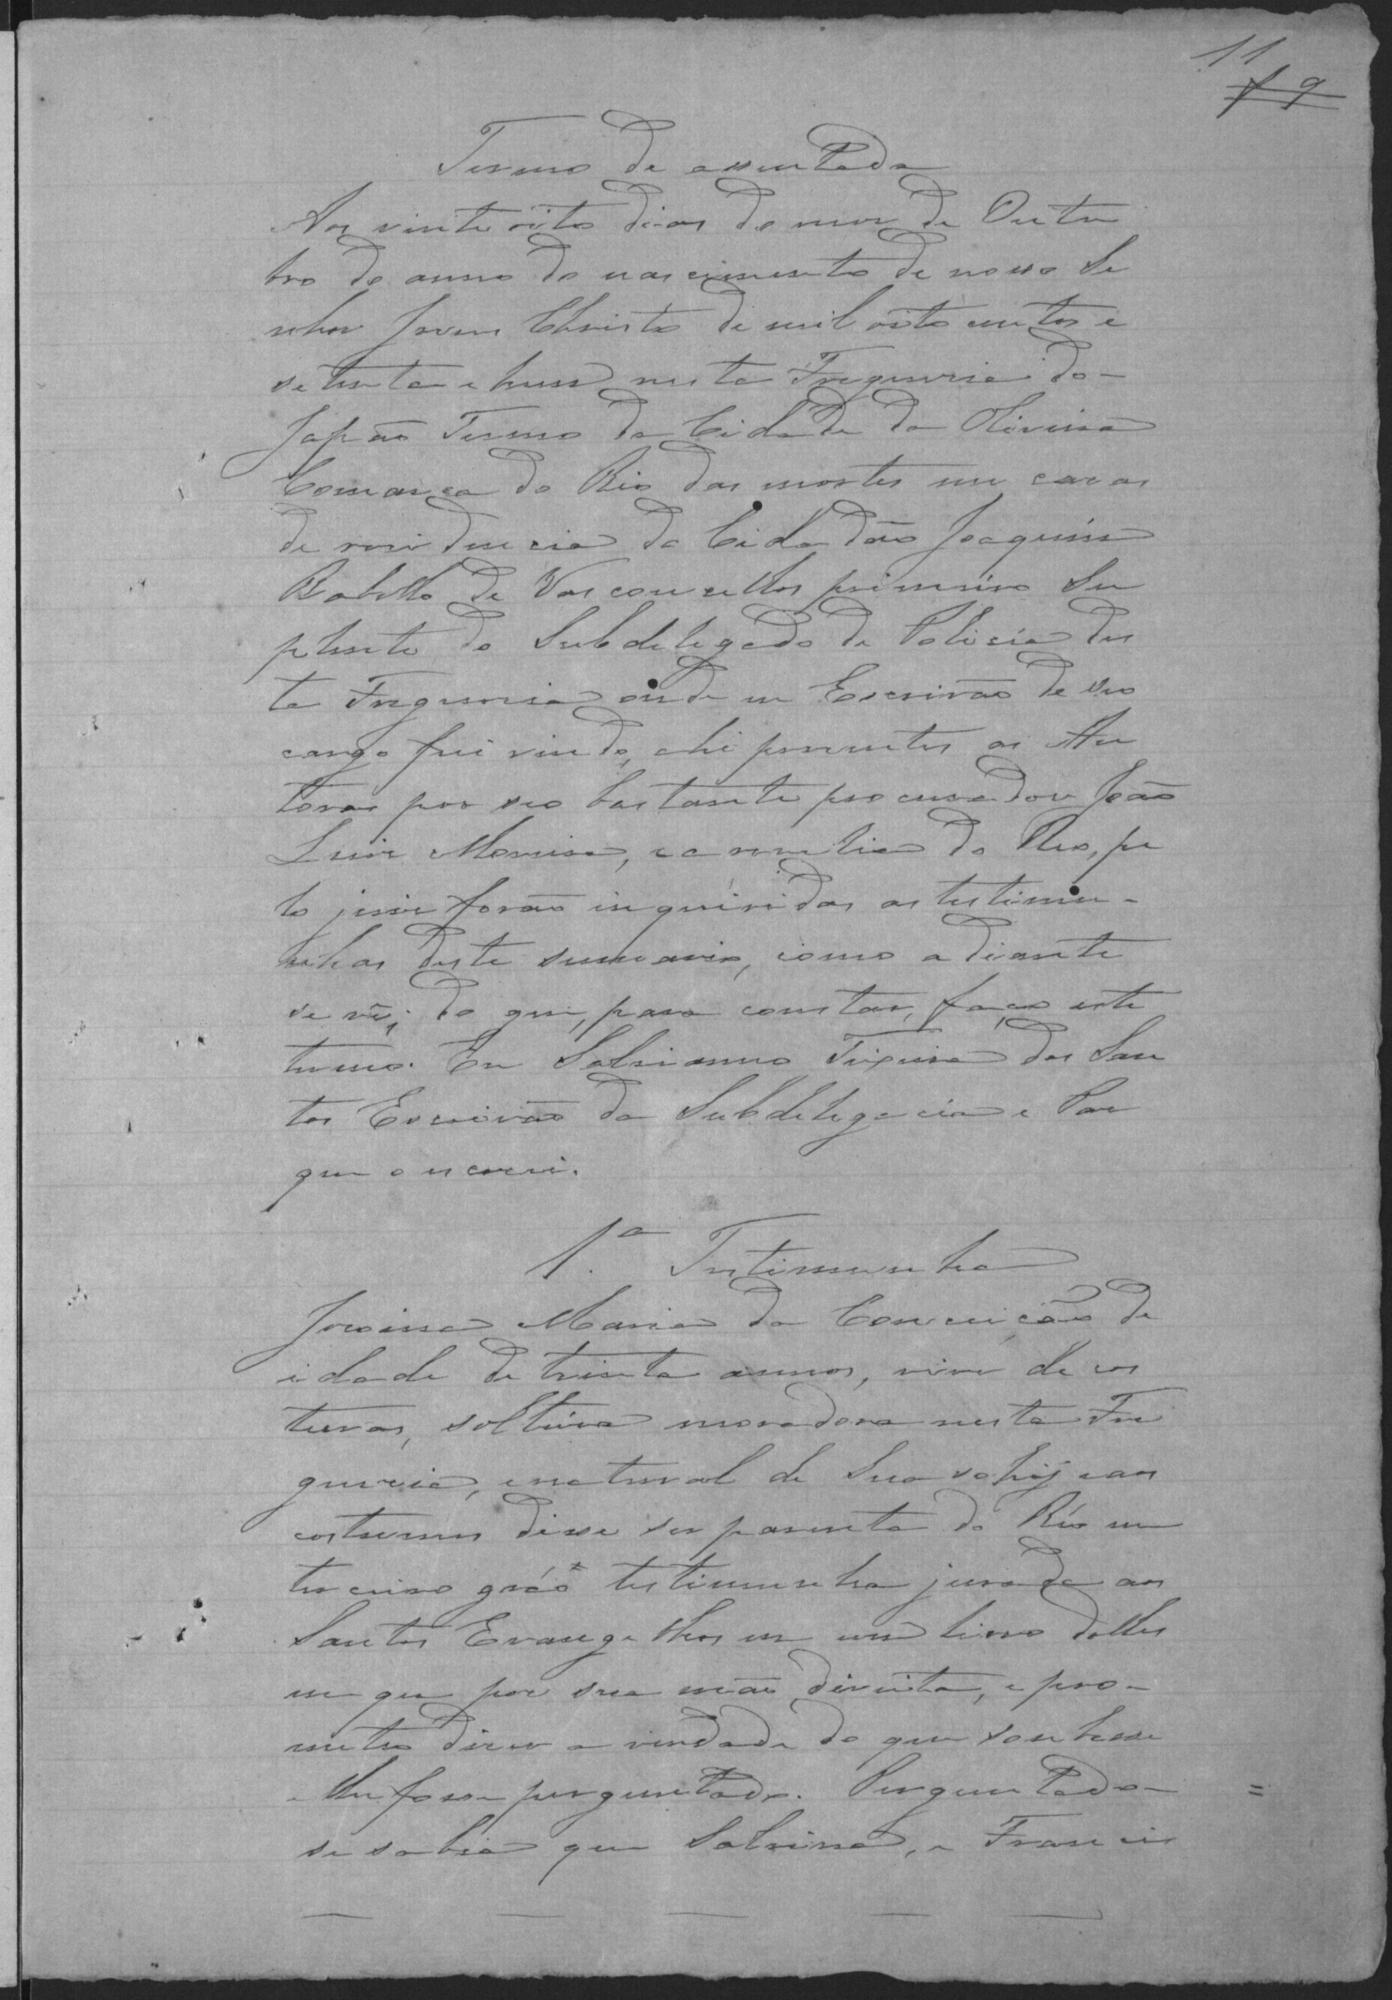 11
19
Termo de assentada
Aos vinte oito dias do mes de Outu
bro do anno do nascimento de nosso Se
nhor Jesus Christo de mil oito centos e
setenta e hum nesta Freguesia do
Japão Termo da Cidade da Oliveira
Comarca do Rio das mortes em casas
de residencia do Cidadão Joaquim
Botelho de Vasconcellos primeiro Su
plente do Subdelegado de Policia des
ta Freguesia onde eu Escrivão de seo
cargo fui vindo, ahi presentes os Au
tores por seo bastante procurador João
Luis Moreira, e a revelia do Reo, pe
lo juis forão inqueridas as testimu-
nhas deste sumario, como a diante
se vê; do que, para constar, faço este
termo. Eu Sabrianno Teixeira dos San
tos Escrivão da Subdelegacia e Pas
que o escrevi.
1.ª Testimunha
Joaquina Maria da Conceição de
idade de trinta annos, vive de cos
turas, solteira moradora nesta Fre
guesia, e natural de Sua sahij e aos
costumes disse ser parenta do Réo em
terceiro gráo testimunha jurada aos
Santos Evangelhos em um livro delles
em que pos sua mão direita, e pro-
meteo diser a verdade do que soubesse
e lhe fosse perguntado. Perguntado
se sabia que Sabrina, e Francis